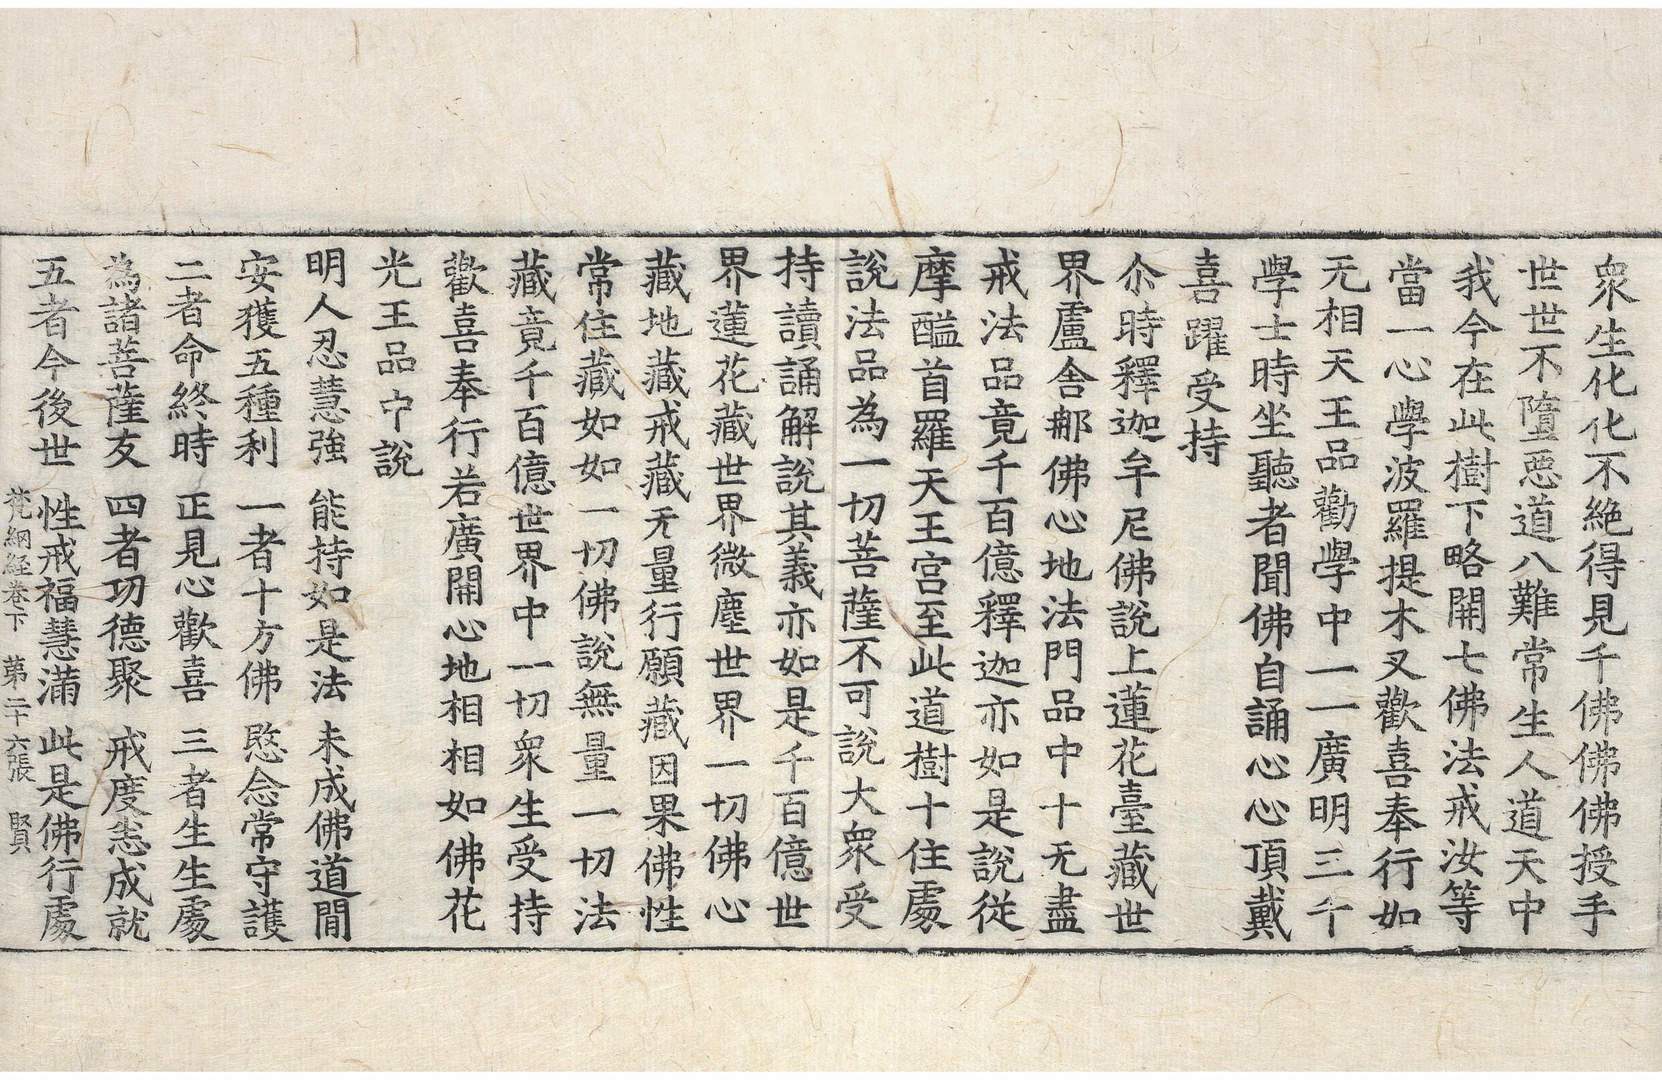 衆生化化不絶得見千佛佛佛授手
世世不墮惡道八難常生人道天中
我今在此樹下略開七佛法戒汝等
當一心學波羅提木叉歡喜奉行如
无相天王品勸學中一一廣明三千
學士時坐聽者聞佛自誦心心頂戴
喜躍受持
尒時釋迦牟尼佛說上蓮花臺藏世
界盧舍那佛心地法門品中十无盡
戒法品竟千百億釋迦亦如是說從
摩醯首羅天王宮至此道樹十住處
說法品為一切菩薩不可說大衆受
持讀誦解說其義亦如是千百億世
界蓮花藏世界微塵世界一切佛心
藏地藏戒藏无量行願藏因果佛性
常住藏如如一切佛說無量一切法
藏竟千百億世界中一切衆生受持
歡喜奉行若廣開心地相相如佛花
光王品中說
明人忍慧強 能持如是法 未成佛道間
安獲五種利 一者十方佛 愍念常守護
二者命終時 正見心歡喜 三者生生處
為諸菩薩友 四者功德聚 戒度悉成就
五者今後世 性戒福慧滿 此是佛行處
梵網経卷下 第二十六張 賢